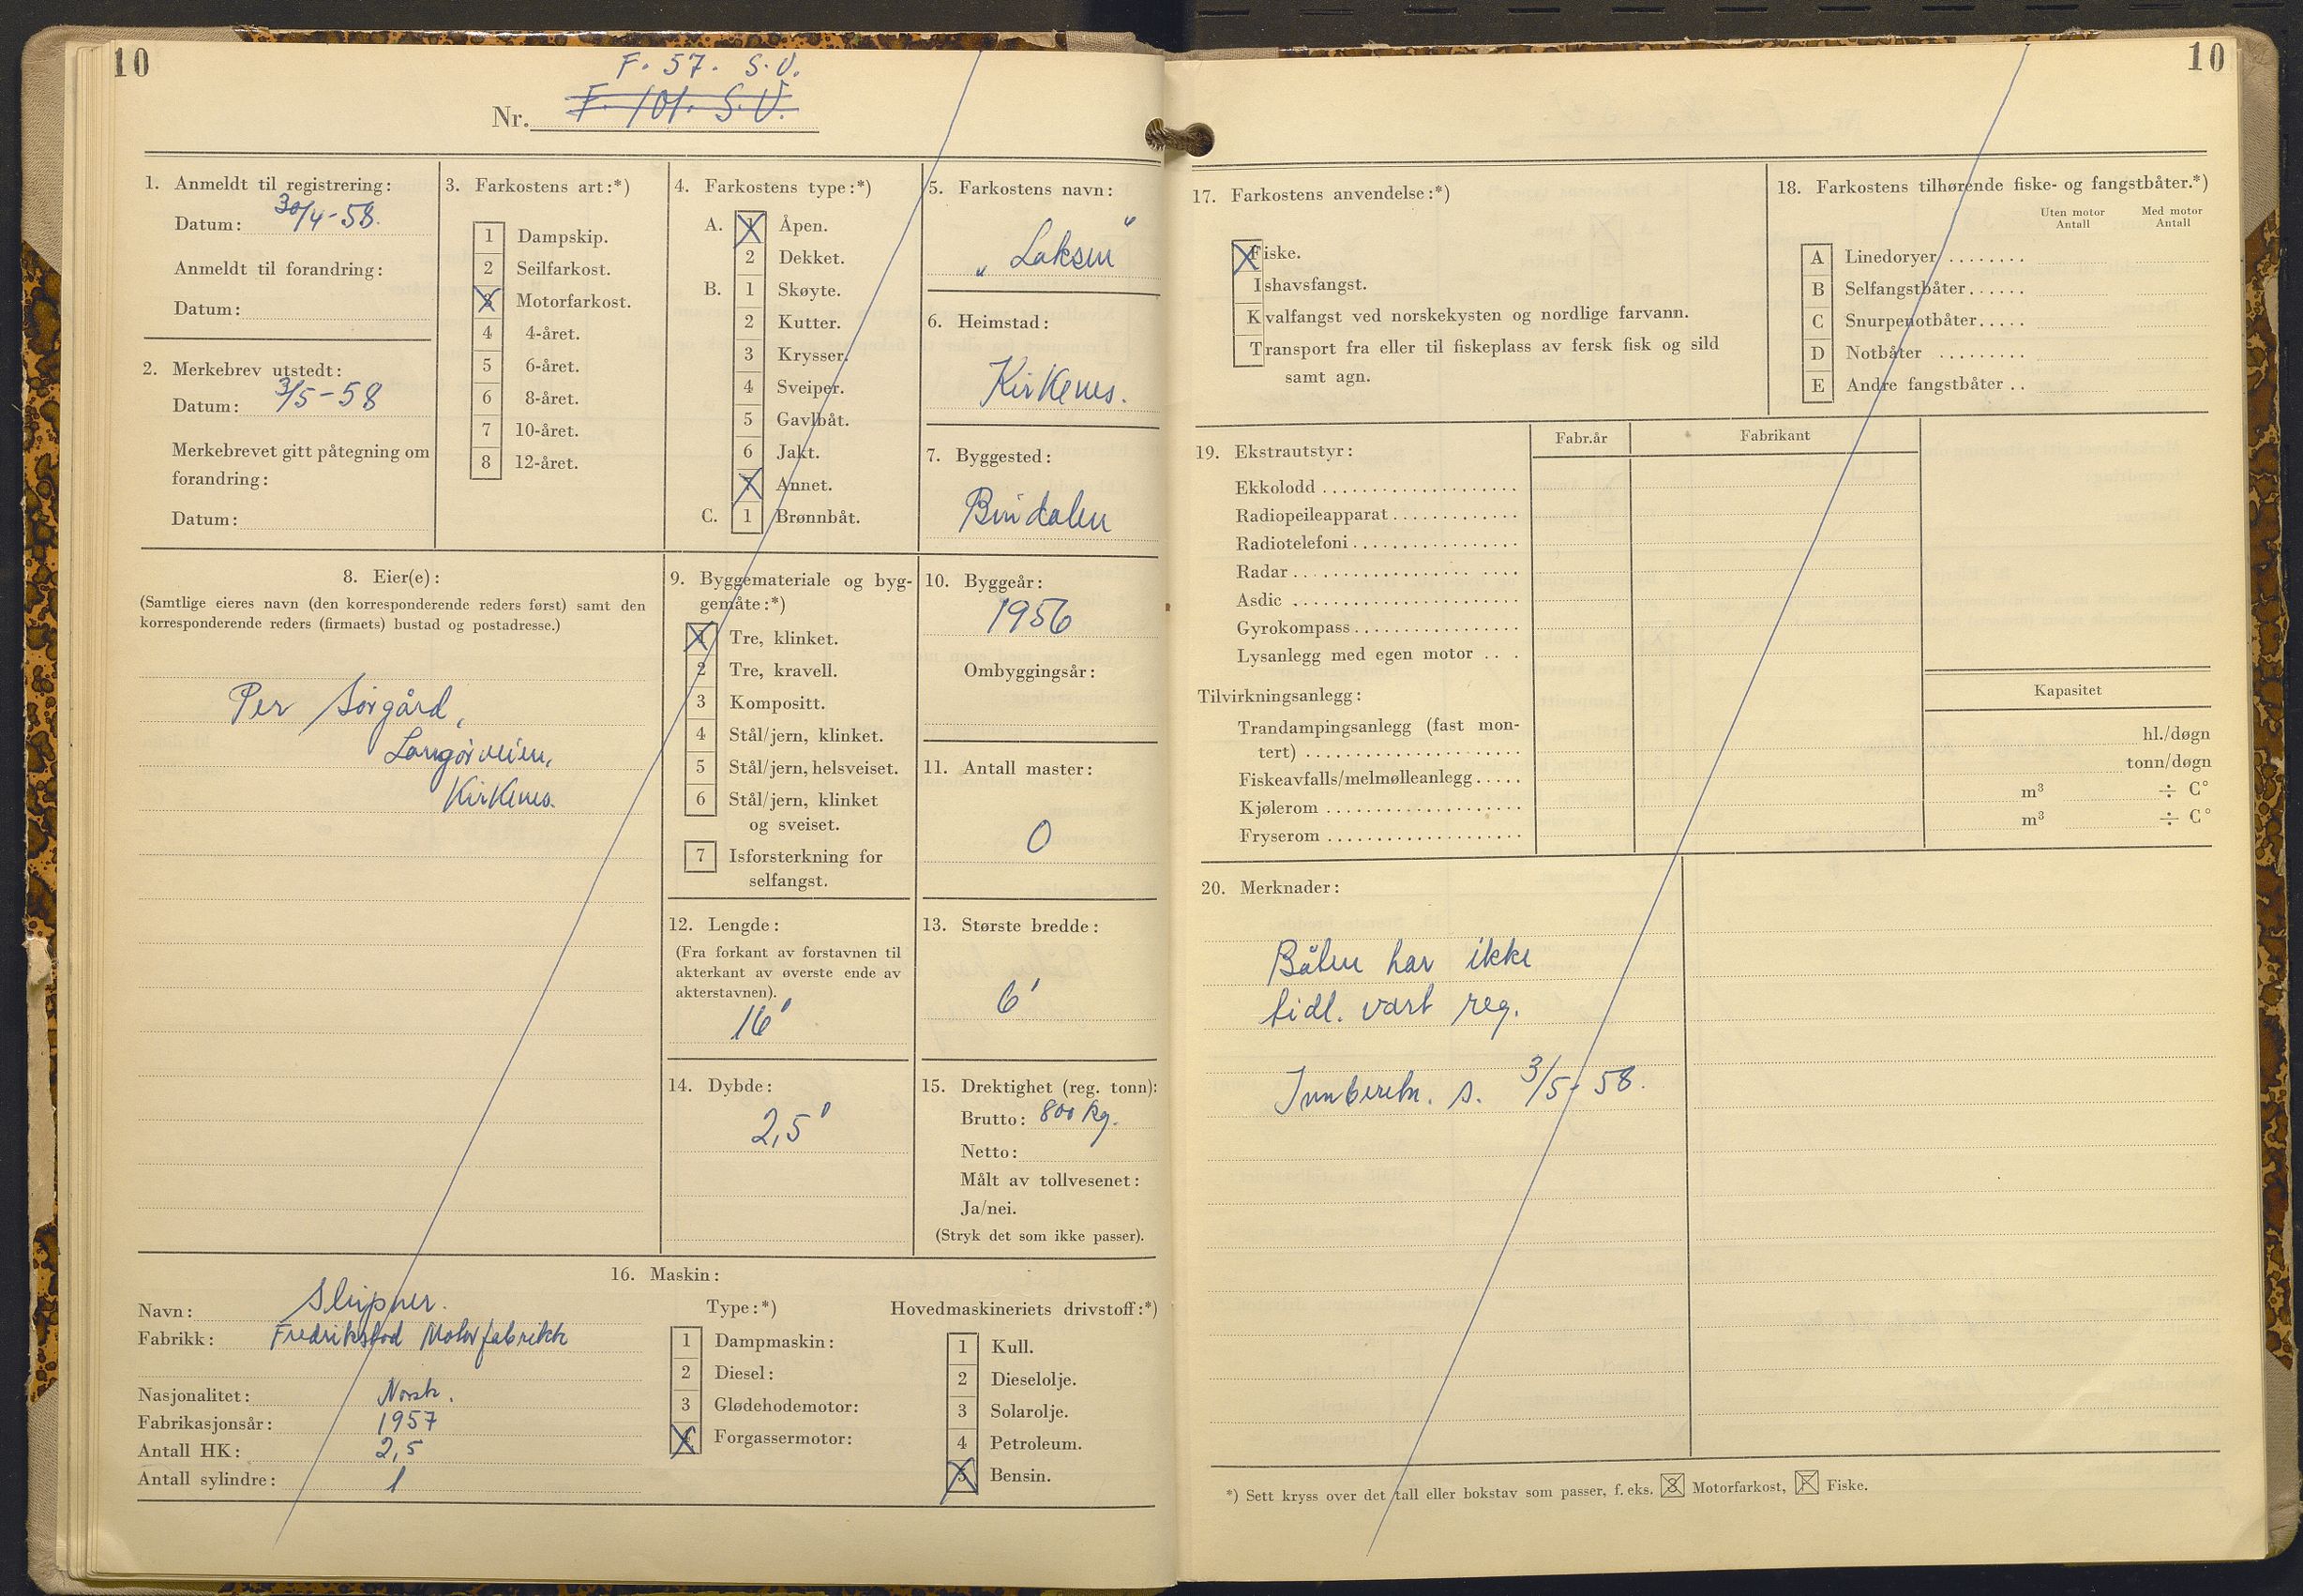 10
F. 57. S.V.
Nr. F. 101. S.V.
1. Anmeldt til registrering:
Datum: 30/4-58.
Anmeldt til forandring:
Datum:
2. Merkebrev utstedt:
Datum: 3/5-58
Merkebrevet gitt påtegning om
forandring:
Datum:
3. Farkostens art:*)
1 Dampskip.
2 Seilfarkost.
3 Motorfarkost.
4 4-året.
5 6-året.
6 8-året.
7 10-året.
8 12-året.
4. Farkostens type:*)
A. 1 Åpen.
2 Dekket.
B. 1 Skøyte.
2 Kutter.
3 Krysser.
4 Sveiper.
5 Gavlbåt.
6 Jakt.
7 Annet.
C. 1 Brønnbåt.
5. Farkostens navn:
„Laksen"
6. Heimstad:
Kirkenes.
7. Byggested:
Bindalen
8. Eier(e):
(Samtlige eieres navn (den korresponderende reders først) samt den
korresponderende reders (firmaets) bustad og postadresse.)
Per Sørgård,
Langørveien,
Kirkenes.
9. Byggemateriale og byg-
gemåte:*)
1 Tre, klinket.
2 Tre, kravell.
3 Kompositt.
4 Stål/jern, klinket.
5 Stål/jern, helsveiset.
6 Stål/jern, klinket
og sveiset.
7 Isforsterkning for
selfangst.
10. Byggeår:
1956
Ombyggingsår:
11. Antall master:
0
12. Lengde:
(Fra forkant av forstavnen til
akterkant av øverste ende av
akterstavnen).
16'
13. Største bredde:
6'
14. Dybde:
2,5'
15. Drektighet (reg. tonn):
Brutto: 800 kg.
Netto:
Målt av tollvesenet:
Ja/nei.
(Stryk det som ikke passer).
16. Maskin:
Navn: Sleipner.
Fabrikk: Fredrikstad Motorfabrikk
Nasjonalitet: Norsk.
Fabrikasjonsår: 1957
Antall HK: 2,5
Antall sylindre: 1
Type:*)
1 Dampmaskin:
2 Diesel:
3 Glødehodemotor:
4 Forgassermotor:
Hovedmaskineriets drivstoff:*)
1 Kull.
2 Dieselolje.
3 Solarolje.
4 Petroleum.
5 Bensin.
10
17. Farkostens anvendelse:*)
Fiske.
Ishavsfangst.
Kvalfangst ved norskekysten og nordlige farvann.
Transport fra eller til fiskeplass av fersk fisk og sild
samt agn.
18. Farkostens tilhørende fiske- og fangstbåter.*)
Uten motor Med motor
Antall Antall
A Linedoryer ........
B Selfangstbåter......
C Snurpenotbåter.....
D Notbåter .........
E Andre fangstbåter ..
19. Ekstrautstyr:
Fabr.år Fabrikant
Ekkolodd ....................
Radiopeileapparat .............
Radiotelefoni .................
Radar .......................
Asdic .......................
Gyrokompass .................
Lysanlegg med egen motor ...
Tilvirkningsanlegg:
Kapasitet
Trandampingsanlegg (fast mon-
tert) ...................... hl./døgn
Fiskeavfalls/melmølleanlegg ..... tonn/døgn
Kjølerom .................... m³ ÷ C°
Fryserom .................... m³ ÷ C°
20. Merknader:
Båten har ikke
tidl. vært reg.
Innberetn. s. 3/5-58.
*) Sett kryss over det tall eller bokstav som passer, f. eks. 3 Motorfarkost, F Fiske.